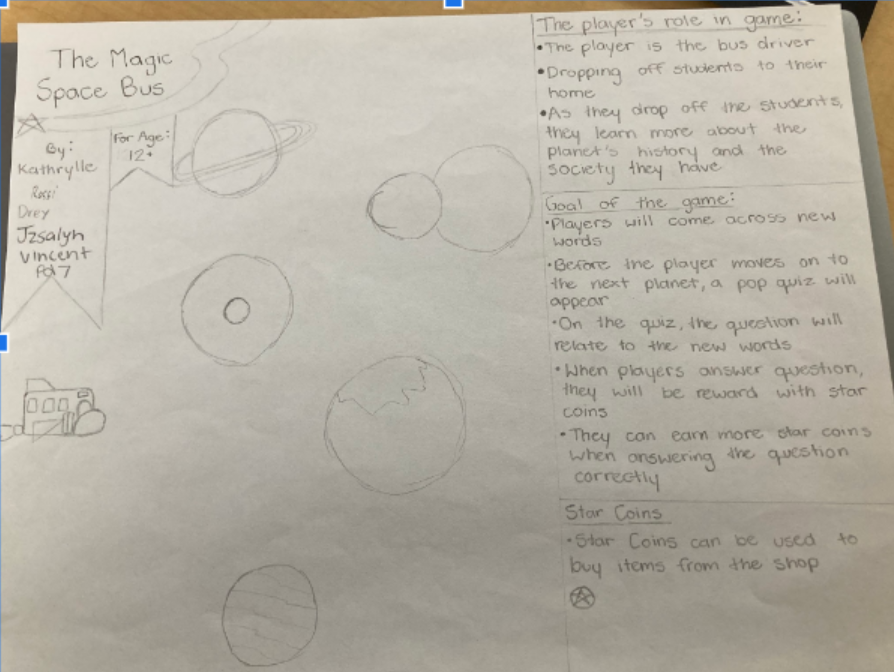 The Magic
Space Bus
By:
Kathrylle
Rossi
Drey
Jzsalyn
Vincent
Pd 7
For Age:
12+
The player's role in game:
•The player is the bus driver
•Dropping off students to their
home
•As they drop off the students,
they learn more about the
planet's history and the
society they have
Goal of the game:
•Players will come across new
words
•Before the player moves on to
the next planet, a pop quiz will
appear
•On the quiz, the question will
relate to the new words
•When players answer question,
they will be reward with star
coins
•They can earn more star coins
when answering the question
correctly
Star Coins
•Star Coins can be used to
buy items from the shop